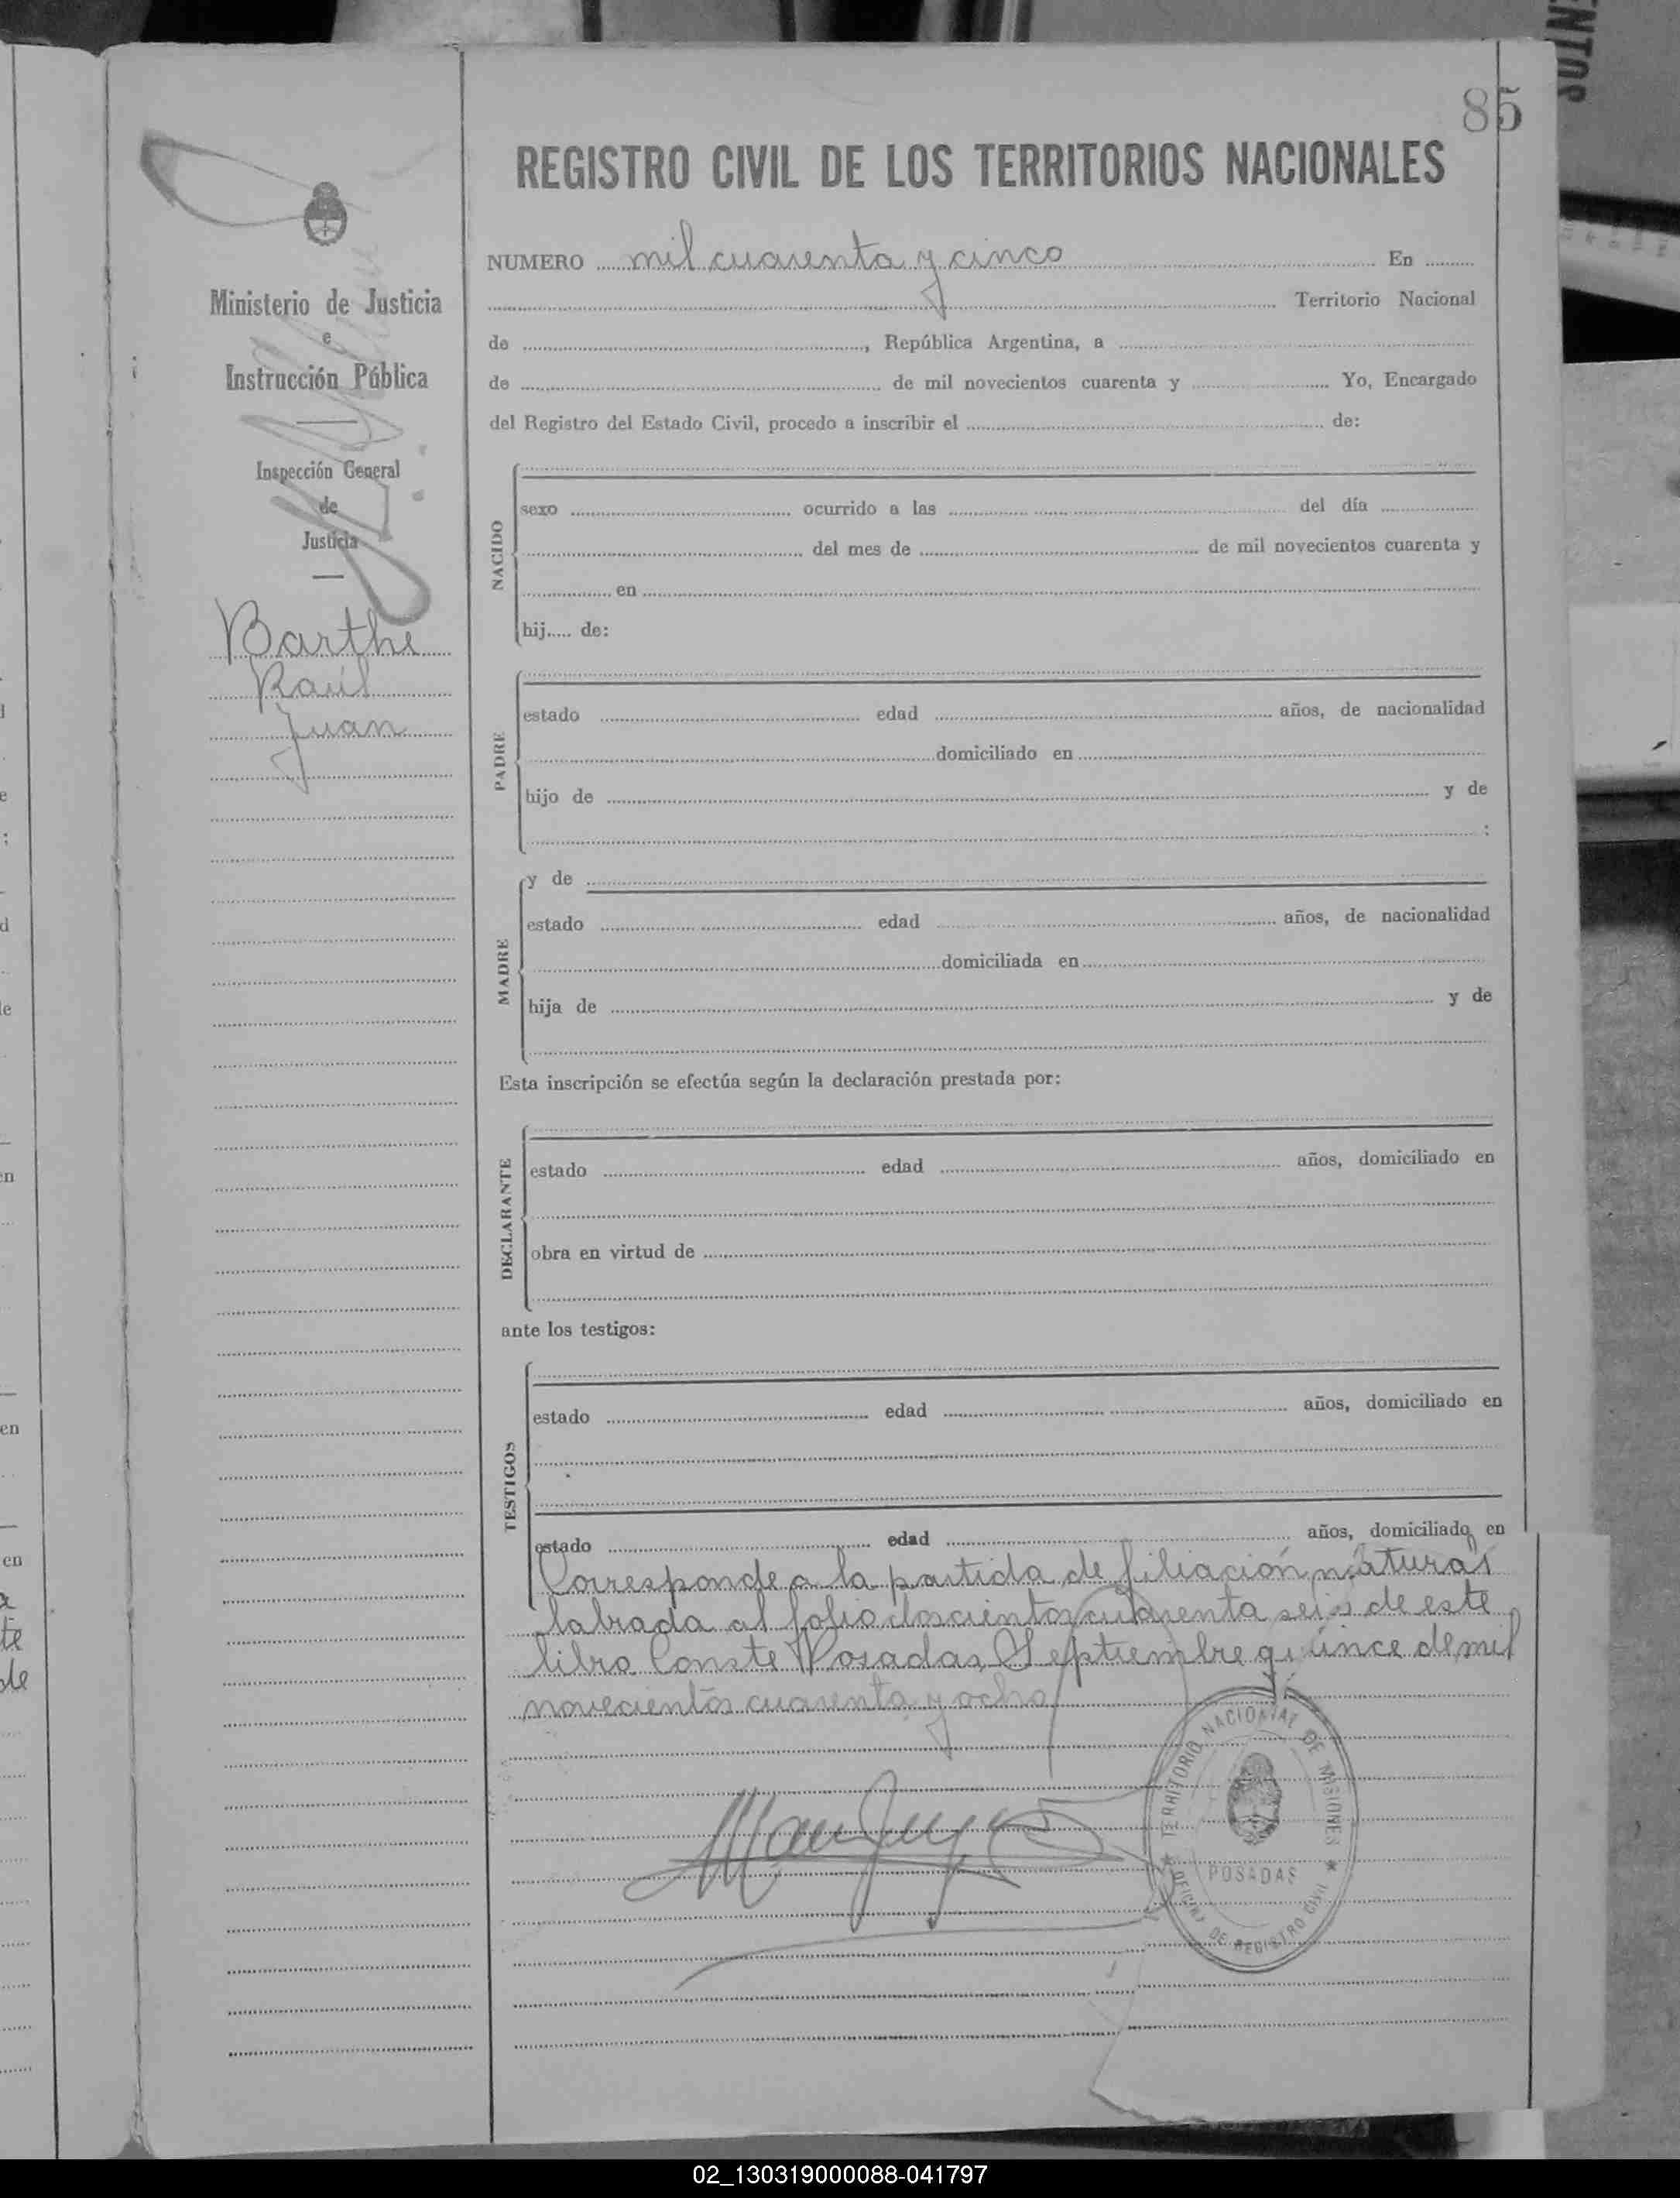 ENTOS
85
REGISTRO CIVIL DE LOS TERRITORIOS NACIONALES
NUMERO mil cuarenta y cinco En
Territorio Nacional
de , República Argentina, a
de de mil novecientos cuarenta y Yo, Encargado
del Registro del Estado Civil, procedo a inscribir el de:
Ministerio de Justicia
e
Instrucción Pública
Inspección General
de
Justicia
Barthe
Raúl
Juan
NACIDO
sexo ocurrido a las del día
del mes de de mil novecientos cuarenta y
en
hij..... de:
PADRE
estado edad años, de nacionalidad
domiciliado en
hijo de y de
:
MADRE
y de
estado edad años, de nacionalidad
domiciliada en
hija de y de
Esta inscripción se efectúa según la declaración prestada por:
DECLARANTE
estado edad años, domiciliado en
obra en virtud de
ante los testigos:
TESTIGOS
estado edad años, domiciliado en
estado edad años, domiciliado en
Corresponde a la partida de filiación natural
labrada al folio doscientos cuarenta seis de este
libro Conste Posadas, Septiembre quince de mil
novecientos cuarenta y ocho
TERRITORIO NACIONAL DE MISIONES
POSADAS
OFICINA DE REGISTRO CIVIL
02_130319000088-041797